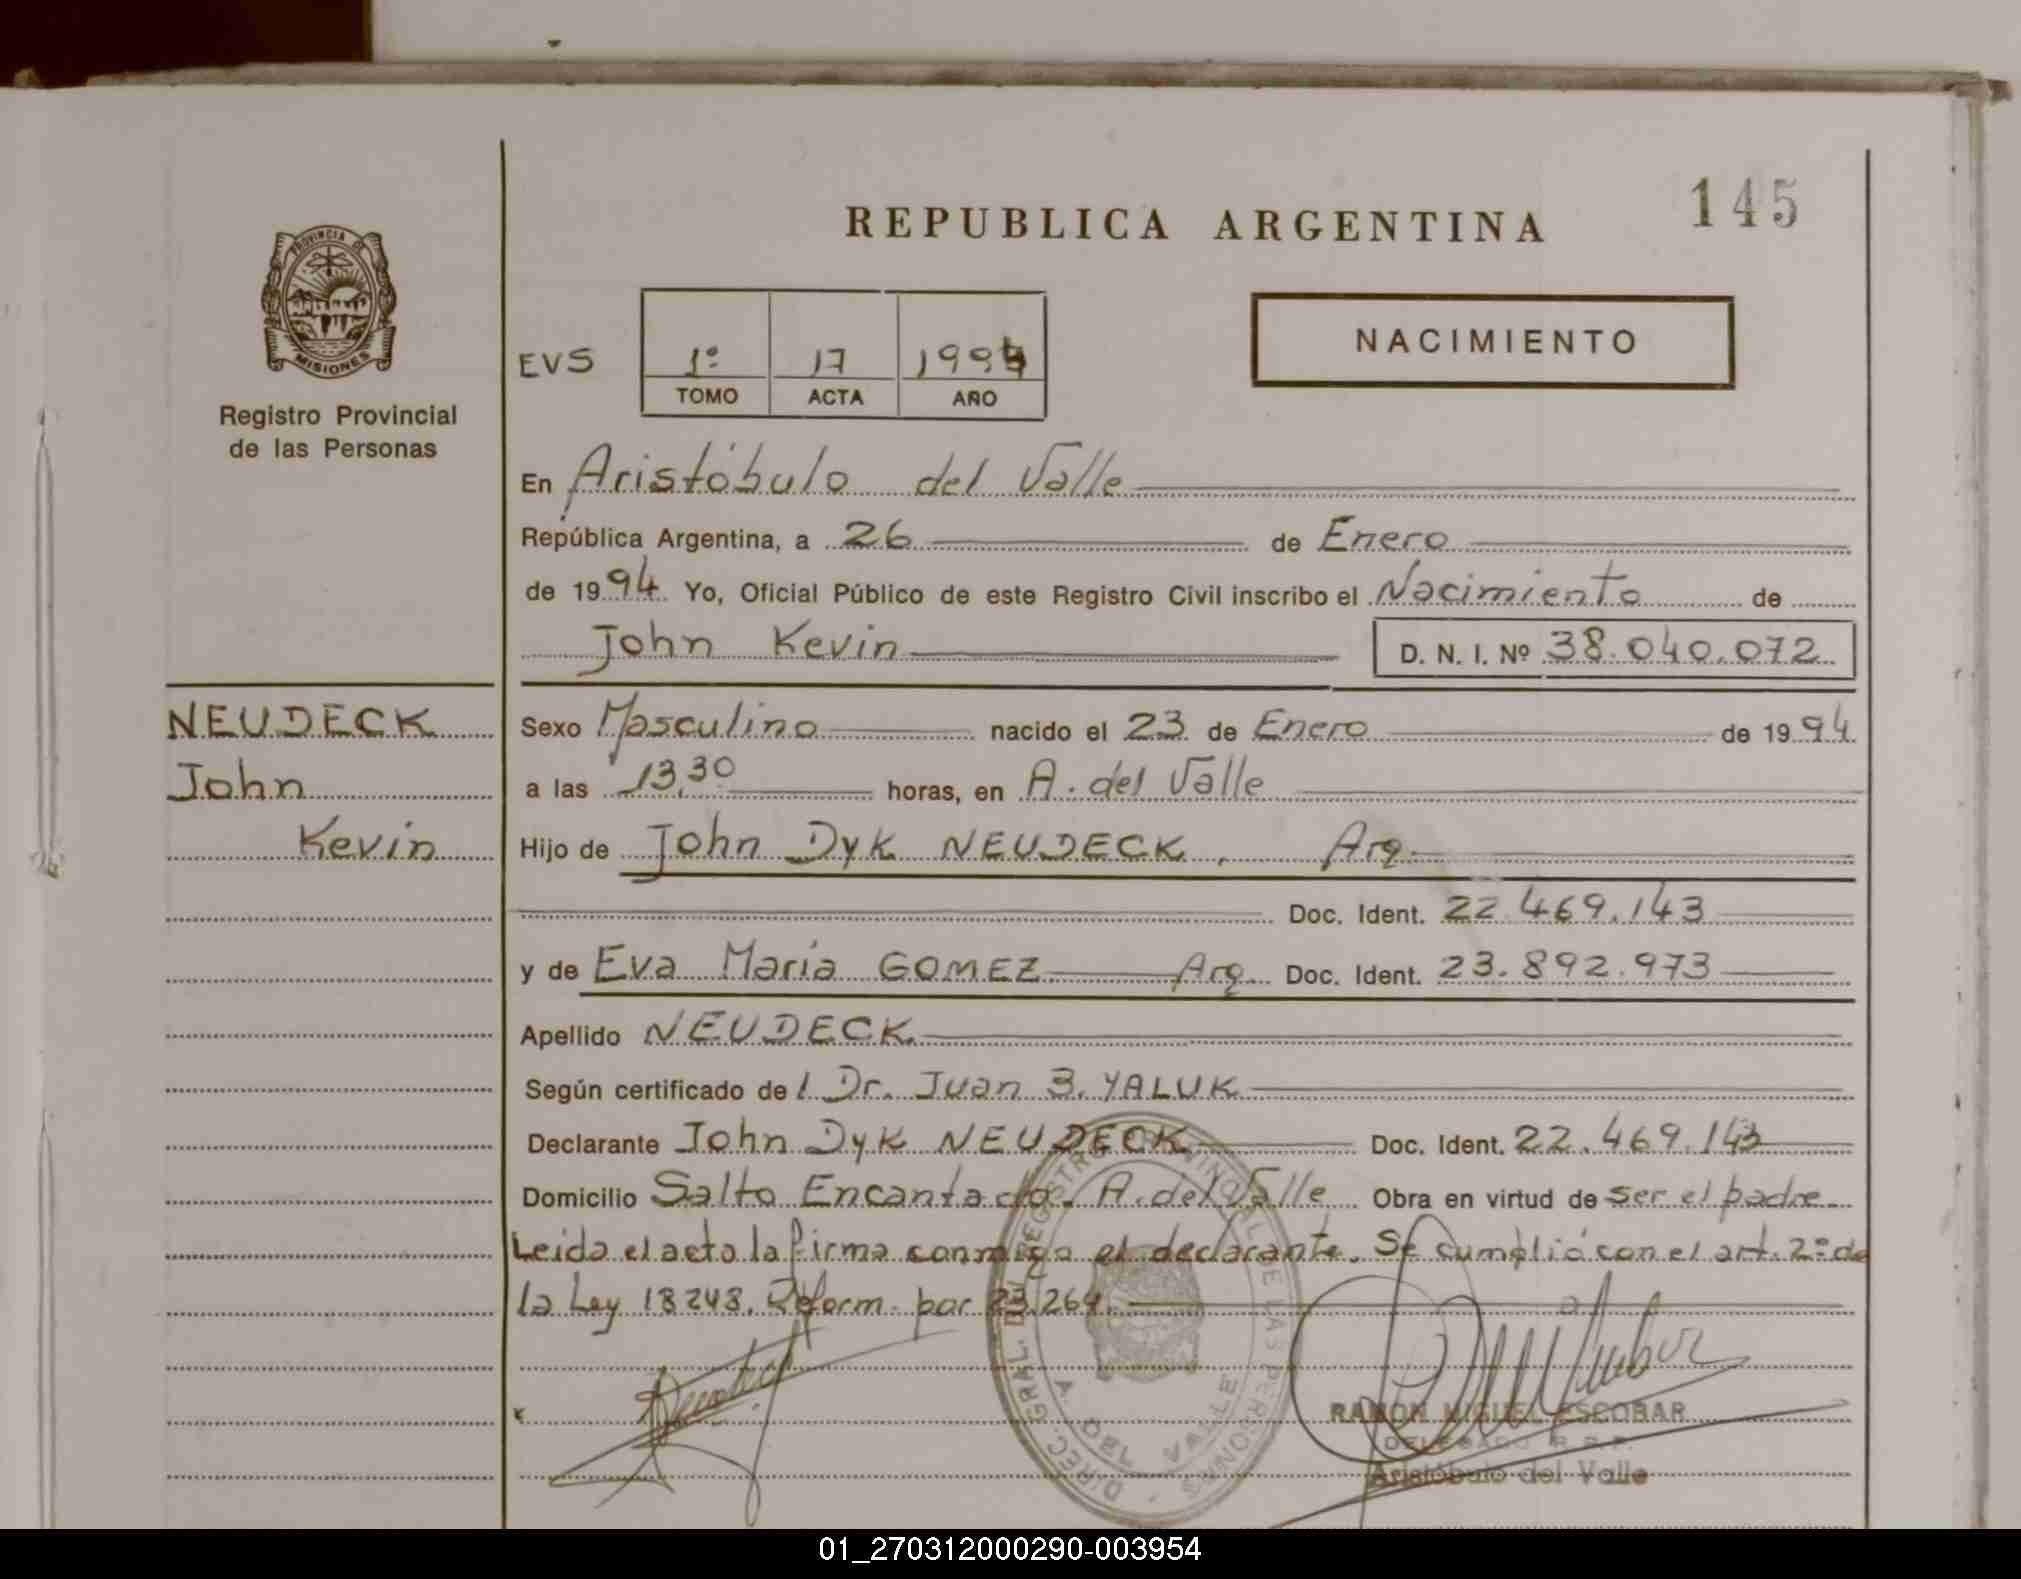 145
REPUBLICA ARGENTINA
PROVINCIA DE
MISIONES
Registro Provincial
de las Personas
NACIMIENTO
EVS 1º 17 1994
TOMO ACTA AÑO
En Aristóbulo del Valle
República Argentina, a 26 de Enero
de 1994 Yo, Oficial Público de este Registro Civil inscribo el Nacimiento de
John Kevin D. N. I. Nº 38.040.072
NEUDECK
John
Kevin
Sexo Masculino nacido el 23 de Enero de 1994
a las 13,30 horas, en A. del Valle
Hijo de John Dyk NEUDECK, Arg.
Doc. Ident. 22.469.143
y de Eva Maria GOMEZ Arg. Doc. Ident. 23.892.973
Apellido NEUDECK
Según certificado de l Dr. Juan B. YALUK
Declarante John Dyk NEUDECK Doc. Ident. 22.469.143
Domicilio Salto Encantado. A. del Valle Obra en virtud de ser el padre
Leida el acta la firma conmigo el declarante. Se cumplió con el art. 2º de
la Ley 18248. Reform. por 23.264.
DIREC. GRAL. DEL REGISTRO PROVINCIAL DE LAS PERSONAS
A. DEL VALLE
RAMON MIGUEL ESCOBAR
DELEGADO R.P.P.
Aristóbulo del Valle
01_270312000290-003954